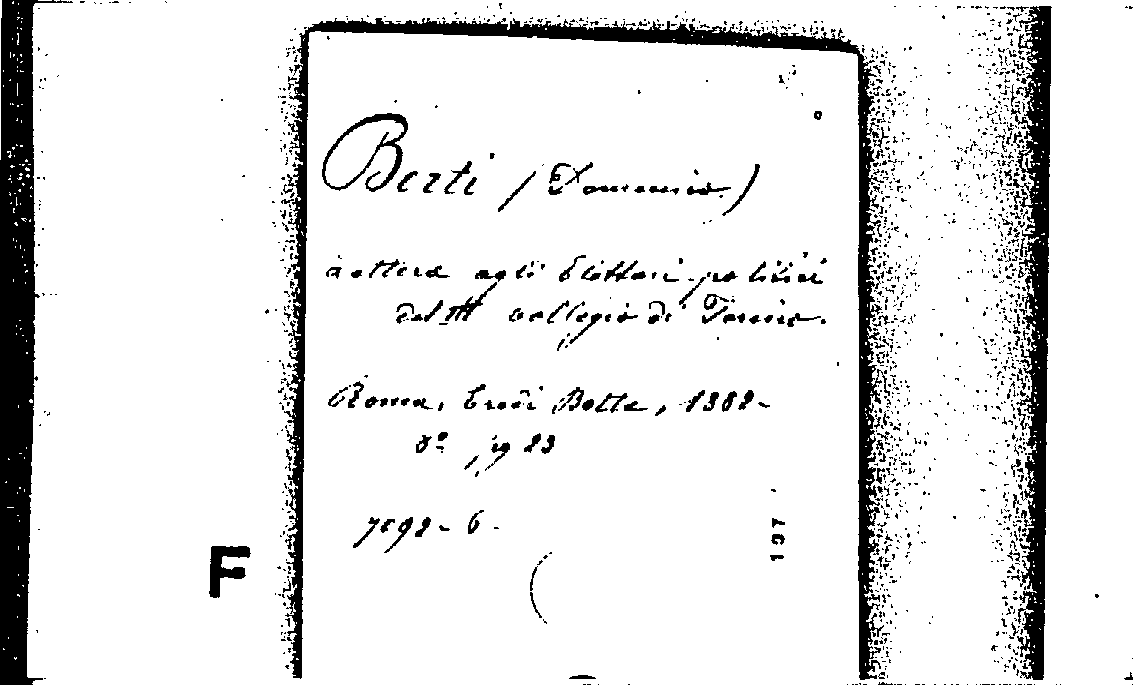 Berti (Domenico)
Lettera agli Elettori politici
del III collegio di Torino.
Roma, Eredi Botta, 1882-
8º, pg 23
7092-6-
197
F